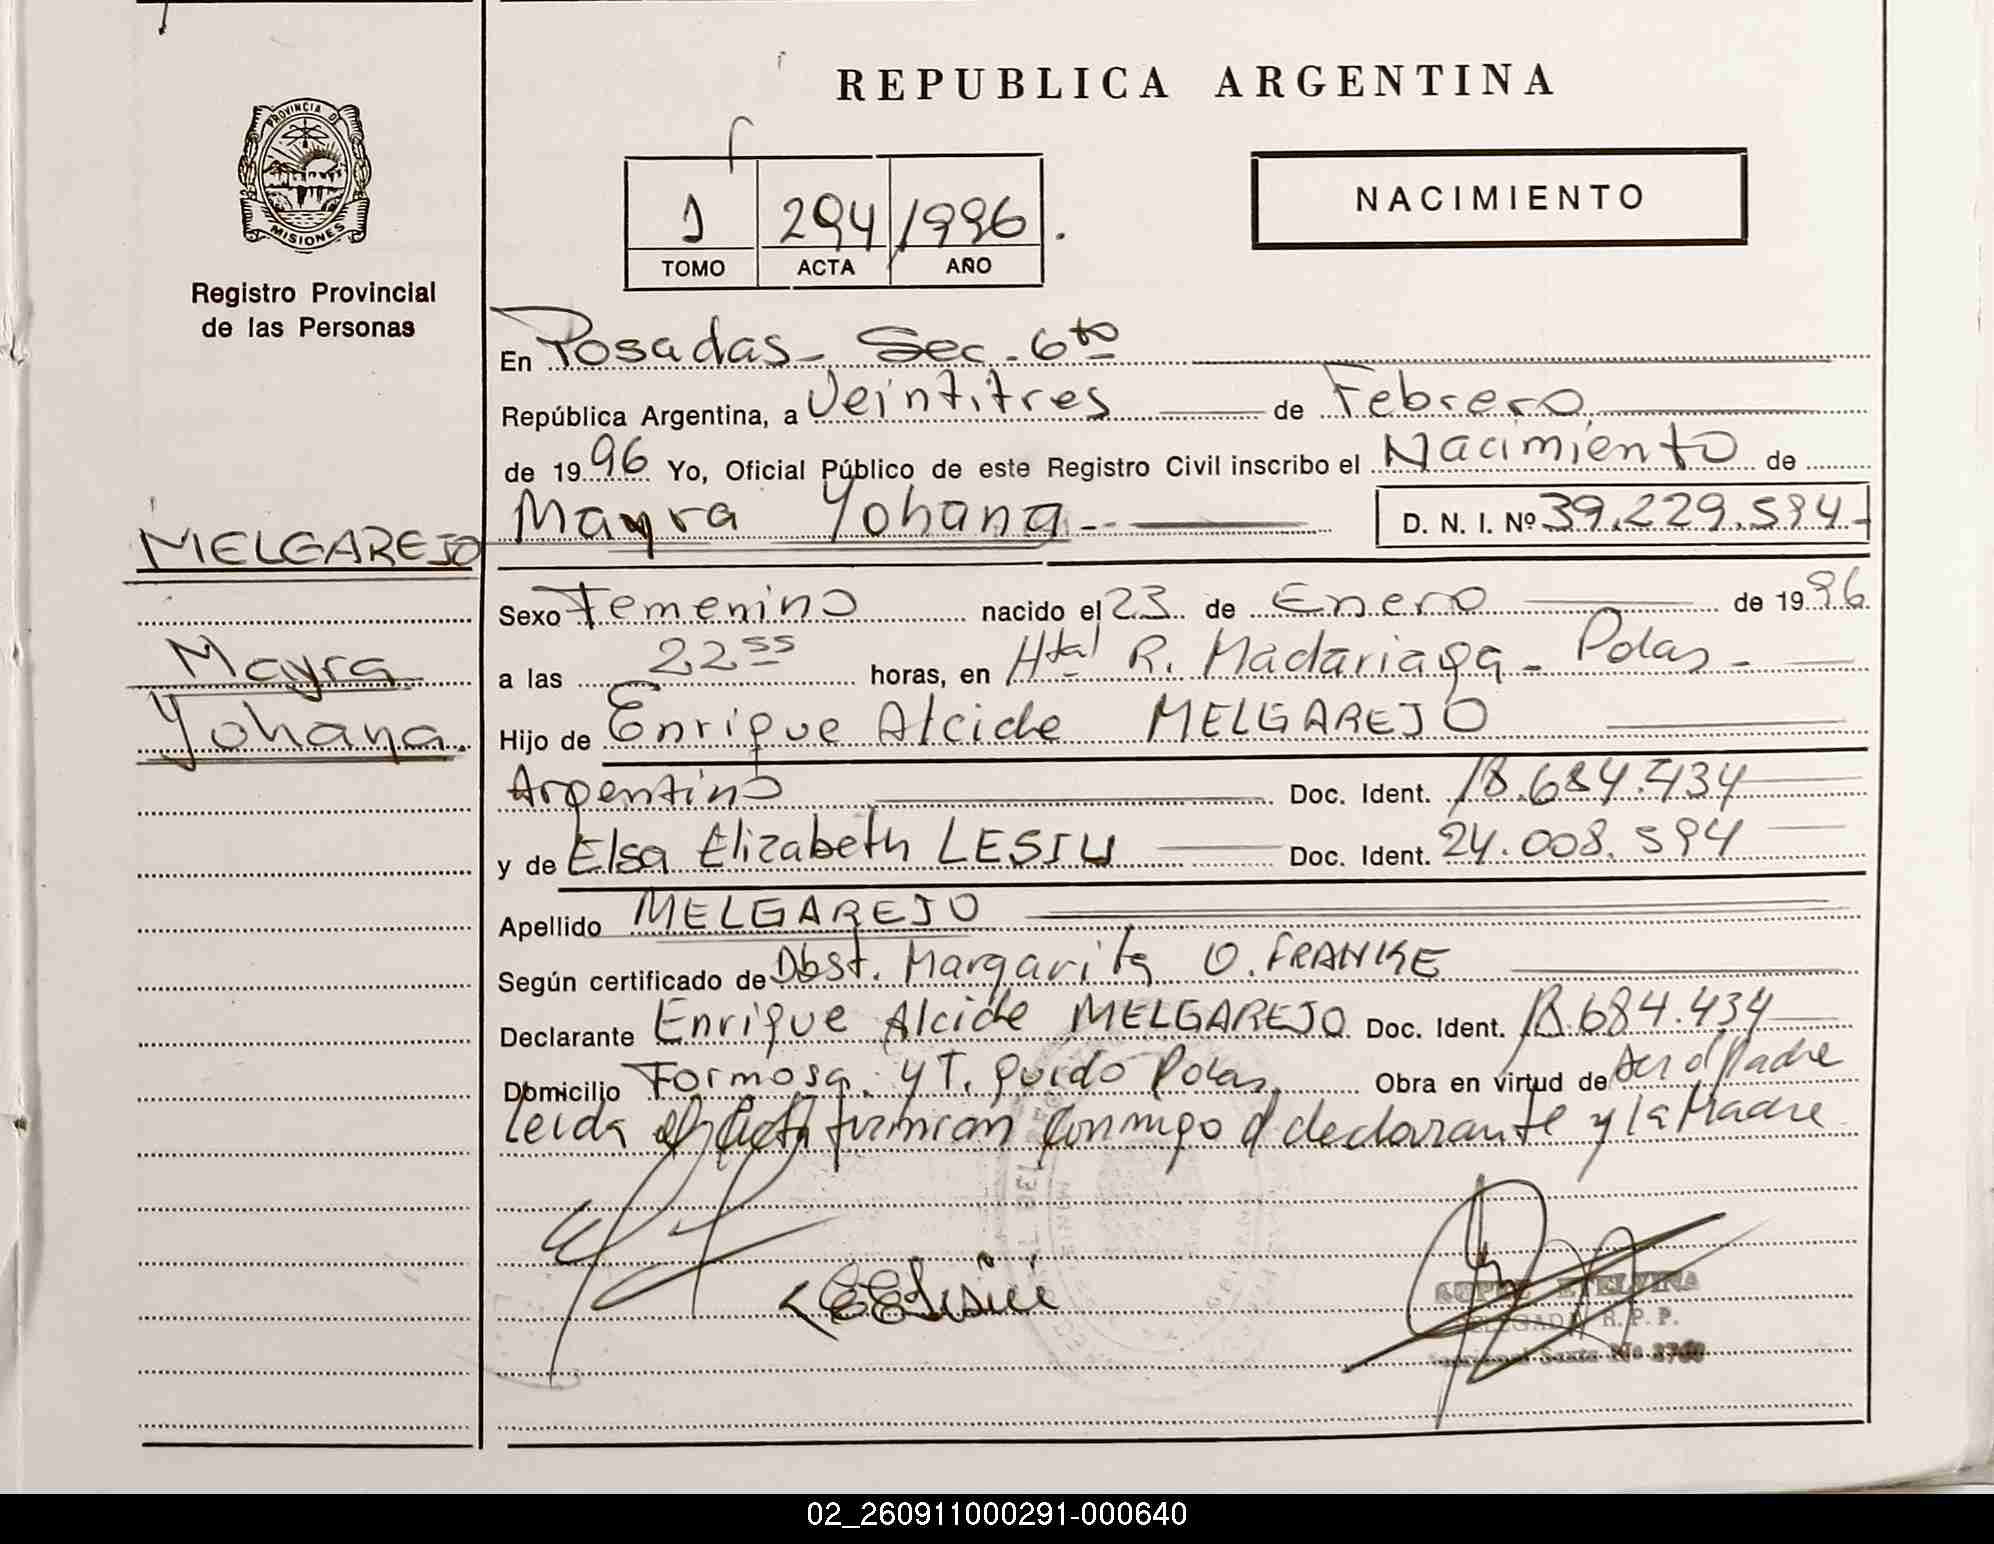 REPUBLICA ARGENTINA
PROVINCIA D
MISIONES
Registro Provincial
de las Personas
1 294 1996.
TOMO ACTA AÑO
NACIMIENTO
En Posadas - Sec. 6to
República Argentina, a Veintitres de Febrero
de 1996 Yo, Oficial Público de este Registro Civil inscribo el Nacimiento de
Mayra Yohana D. N. I. Nº 39.229.594
MELGAREJO
Mayra
Yohana.
Sexo Femenino nacido el 23 de Enero de 1996
a las 22 55 horas, en Htal R. Madariaga - Pdas -
Hijo de Enrique Alcide MELGAREJO
Argentino Doc. Ident. 18.684.434
y de Elsa Elizabeth LESIU Doc. Ident. 24.008.594
Apellido MELGAREJO
Según certificado de Obst. Margarita O. FRANKE
Declarante Enrique Alcide MELGAREJO Doc. Ident. 18.684.434
Domicilio Formosa y T. Guido Pdas. Obra en virtud de ser el Padre
Leida el Acta firman conmigo el declarante y la Madre
R. P. P.
Sexta Nº
02_260911000291-000640